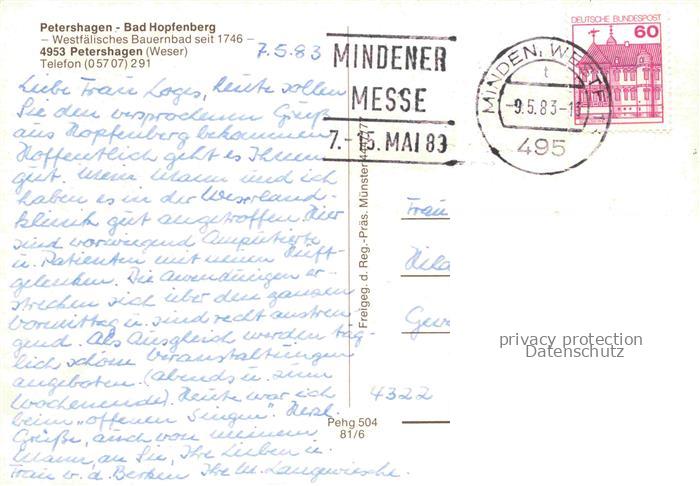 Petershagen - Bad Hopfenberg
– Westfälisches Bauernbad seit 1746 –
4953 Petershagen (Weser)
Telefon (05707) 291
7.5.83
Liebe Frau Loges, heute sollen
Sie den versprochenen Gruß
aus Hopfenberg bekommen.
Hoffentlich geht es Ihnen
gut. Mein Mann und ich
haben es in der Weserland-
klinik gut angetroffen. Hier
sind vorwiegend Amputierte
u. Patienten mit neuen Hüft-
gelenken. Die Anwendungen er-
strecken sich über den ganzen
Vormittag u. sind recht anstren-
gend. Als Ausgleich werden täg-
lich schöne Veranstaltungen
angeboten. (abends u. zum
Wochenende). Heute war ich
beim „offenen Singen". Herzl.
Grüße, auch von meinem
Mann, an Sie, Ihre Lieben u.
Frau v. d. Berken Ihre M. Langwiesche.
MINDENER
MESSE
7.- 15. MAI 83
MINDEN, WESTF 1
t
-9.5.83-
495
DEUTSCHE BUNDESPOST
60
Freigeg. d. Reg.-Präs. Münster
Pehg 504
81/6
Frau
Hild
4322
privacy protection
Datenschutz